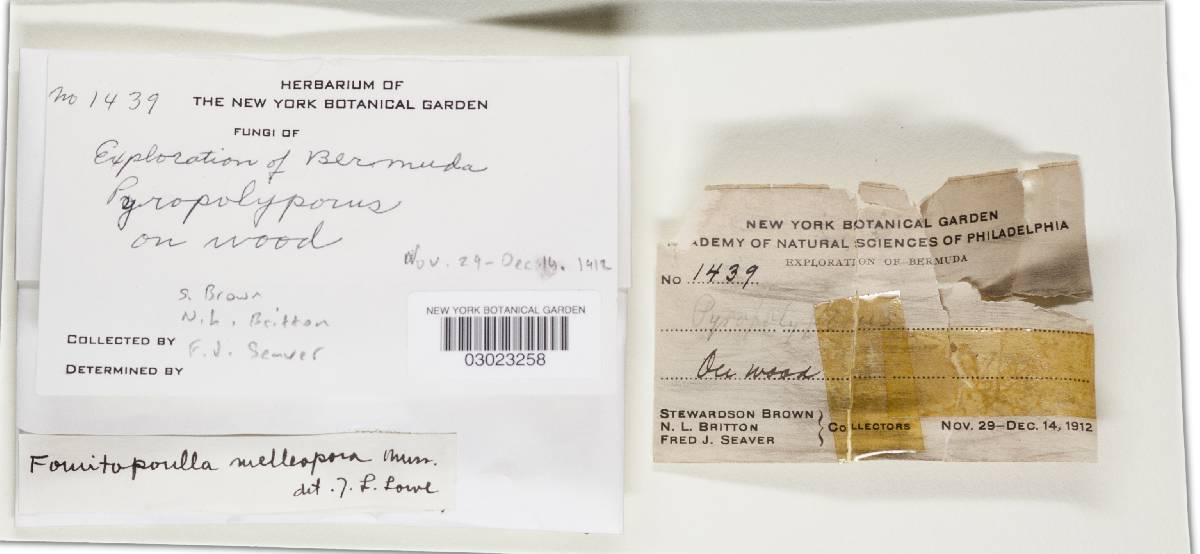 HERBARIUM OF
No 1439 THE NEW YORK BOTANICAL GARDEN
FUNGI OF
Exploration of Bermuda
Pyropolyporus
on wood
Nov. 29-Dec. 14. 1912
S. Brown
N.L. Britton
COLLECTED BY F.J. Seaver
DETERMINED BY
NEW YORK BOTANICAL GARDEN
03023258
Fomitoporella melleopora Murr.
det. J. L. Lowe
NEW YORK BOTANICAL GARDEN
ADEMY OF NATURAL SCIENCES OF PHILADELPHIA
EXPLORATION OF BERMUDA
No 1439
Pyropolyporus
On wood
STEWARDSON BROWN
N. L. BRITTON
FRED J. SEAVER
COLLECTORS NOV. 29–DEC. 14, 1912